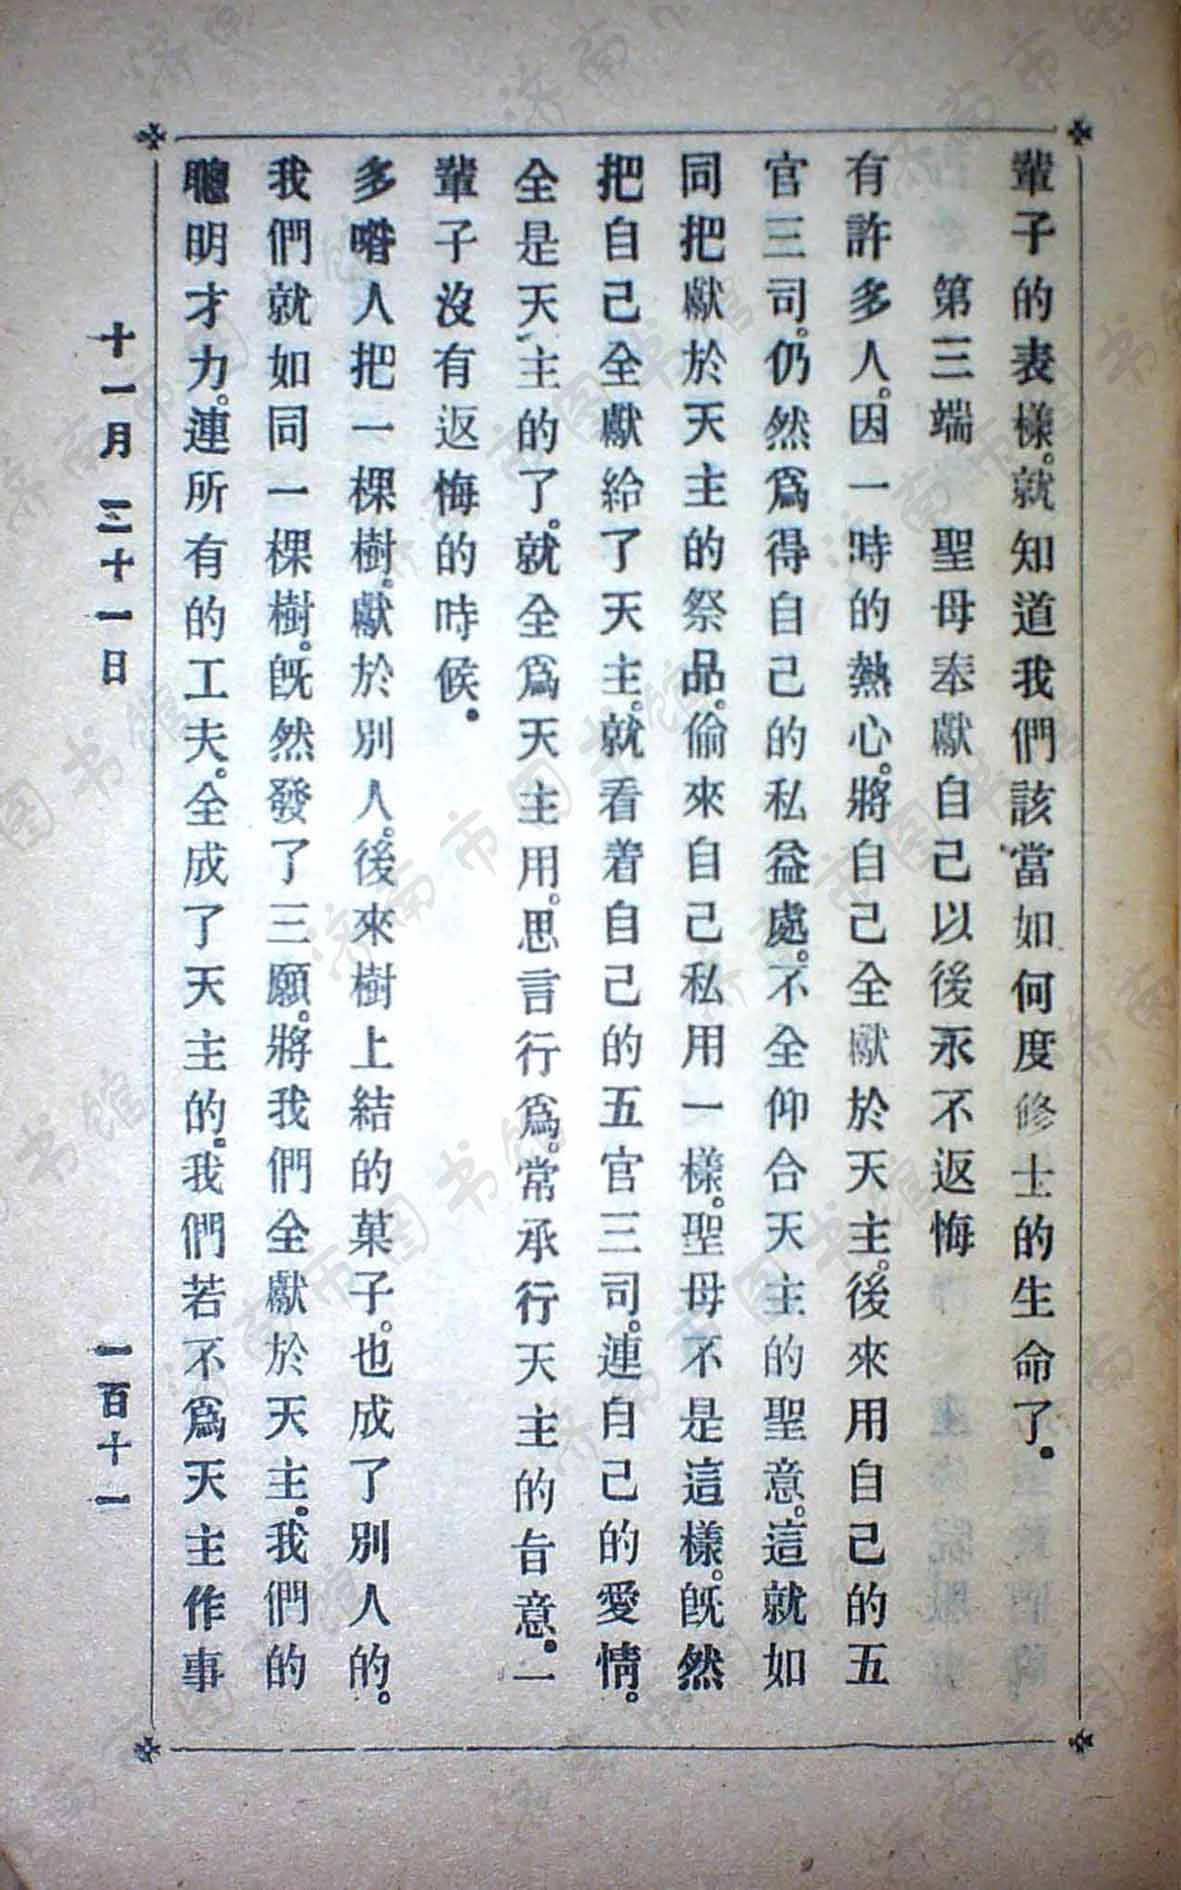 輩子的表樣。就知道我們該當如何度修士的生命了。
第三端　聖母奉獻自己以後永不返悔
有許多人。因一時的熱心。將自己全獻於天主。後來用自己的五
官三司。仍然爲得自己的私益處。不全仰合天主的聖意。這就如
同把獻於天主的祭品。偷來自己私用一樣。聖母不是這樣。旣然
把自己全獻給了天主。就看着自己的五官三司。連自己的愛情。
全是天主的了。就全爲天主用。思言行爲。常承行天主的旨意。一
輩子沒有返悔的時候。
多喒人把一棵樹。獻於別人。後來樹上結的菓子。也成了別人的。
我們就如同一棵樹。旣然發了三願。將我們全獻於天主。我們的
聰明才力。連所有的工夫。全成了天主的。我們若不爲天主作事
十一月 三十一日
一百十一
济南市图书馆